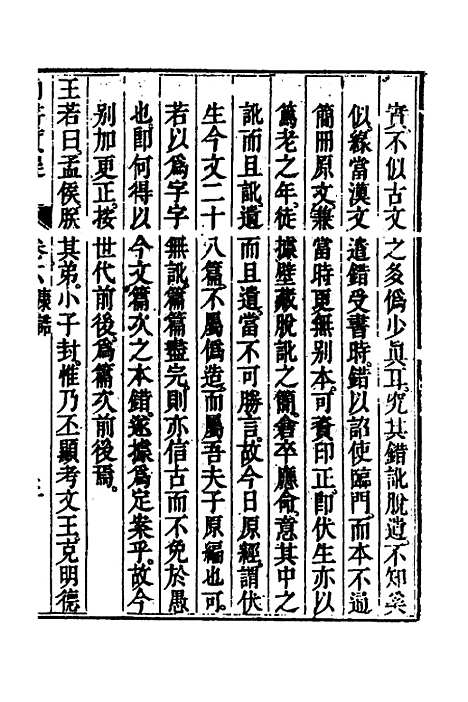 實、不似古文之多僞少眞耳。究其錯訛脫遺、不知奚
似、緣當漢文遣錯受書時、錯以詔使臨門、而本不過
簡冊原文、兼當時更無別本、可資印正、卽伏生亦以
篤老之年、徒據壁藏脫訛之簡、倉卒應命、意其中之
訛而且訛、遺而且遺、當不可勝言、故今日原經、謂伏
生今文二十八篇、不屬僞造、而屬吾夫子原編也可。
若以爲字字無訛、篇篇盡完、則亦信古而不免於愚
也、卽何得以今文篇次之本錯、遂據爲定案乎。故今
別加更正、按世代前後、爲篇次前後焉。
王若曰、孟侯、朕其弟、小子封、惟乃丕顯考文王、克明德